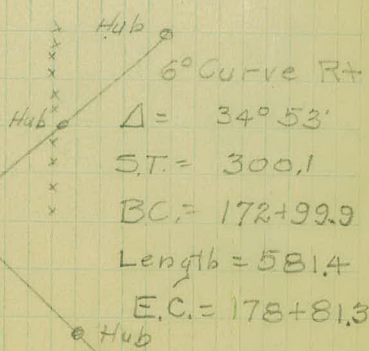 Hub
6° Curve Rt
Hub
Δ = 34° 53'
S.T. = 300.1
BC. = 172+99.9
Length = 581.4
E.C. = 178+81.3
Hub